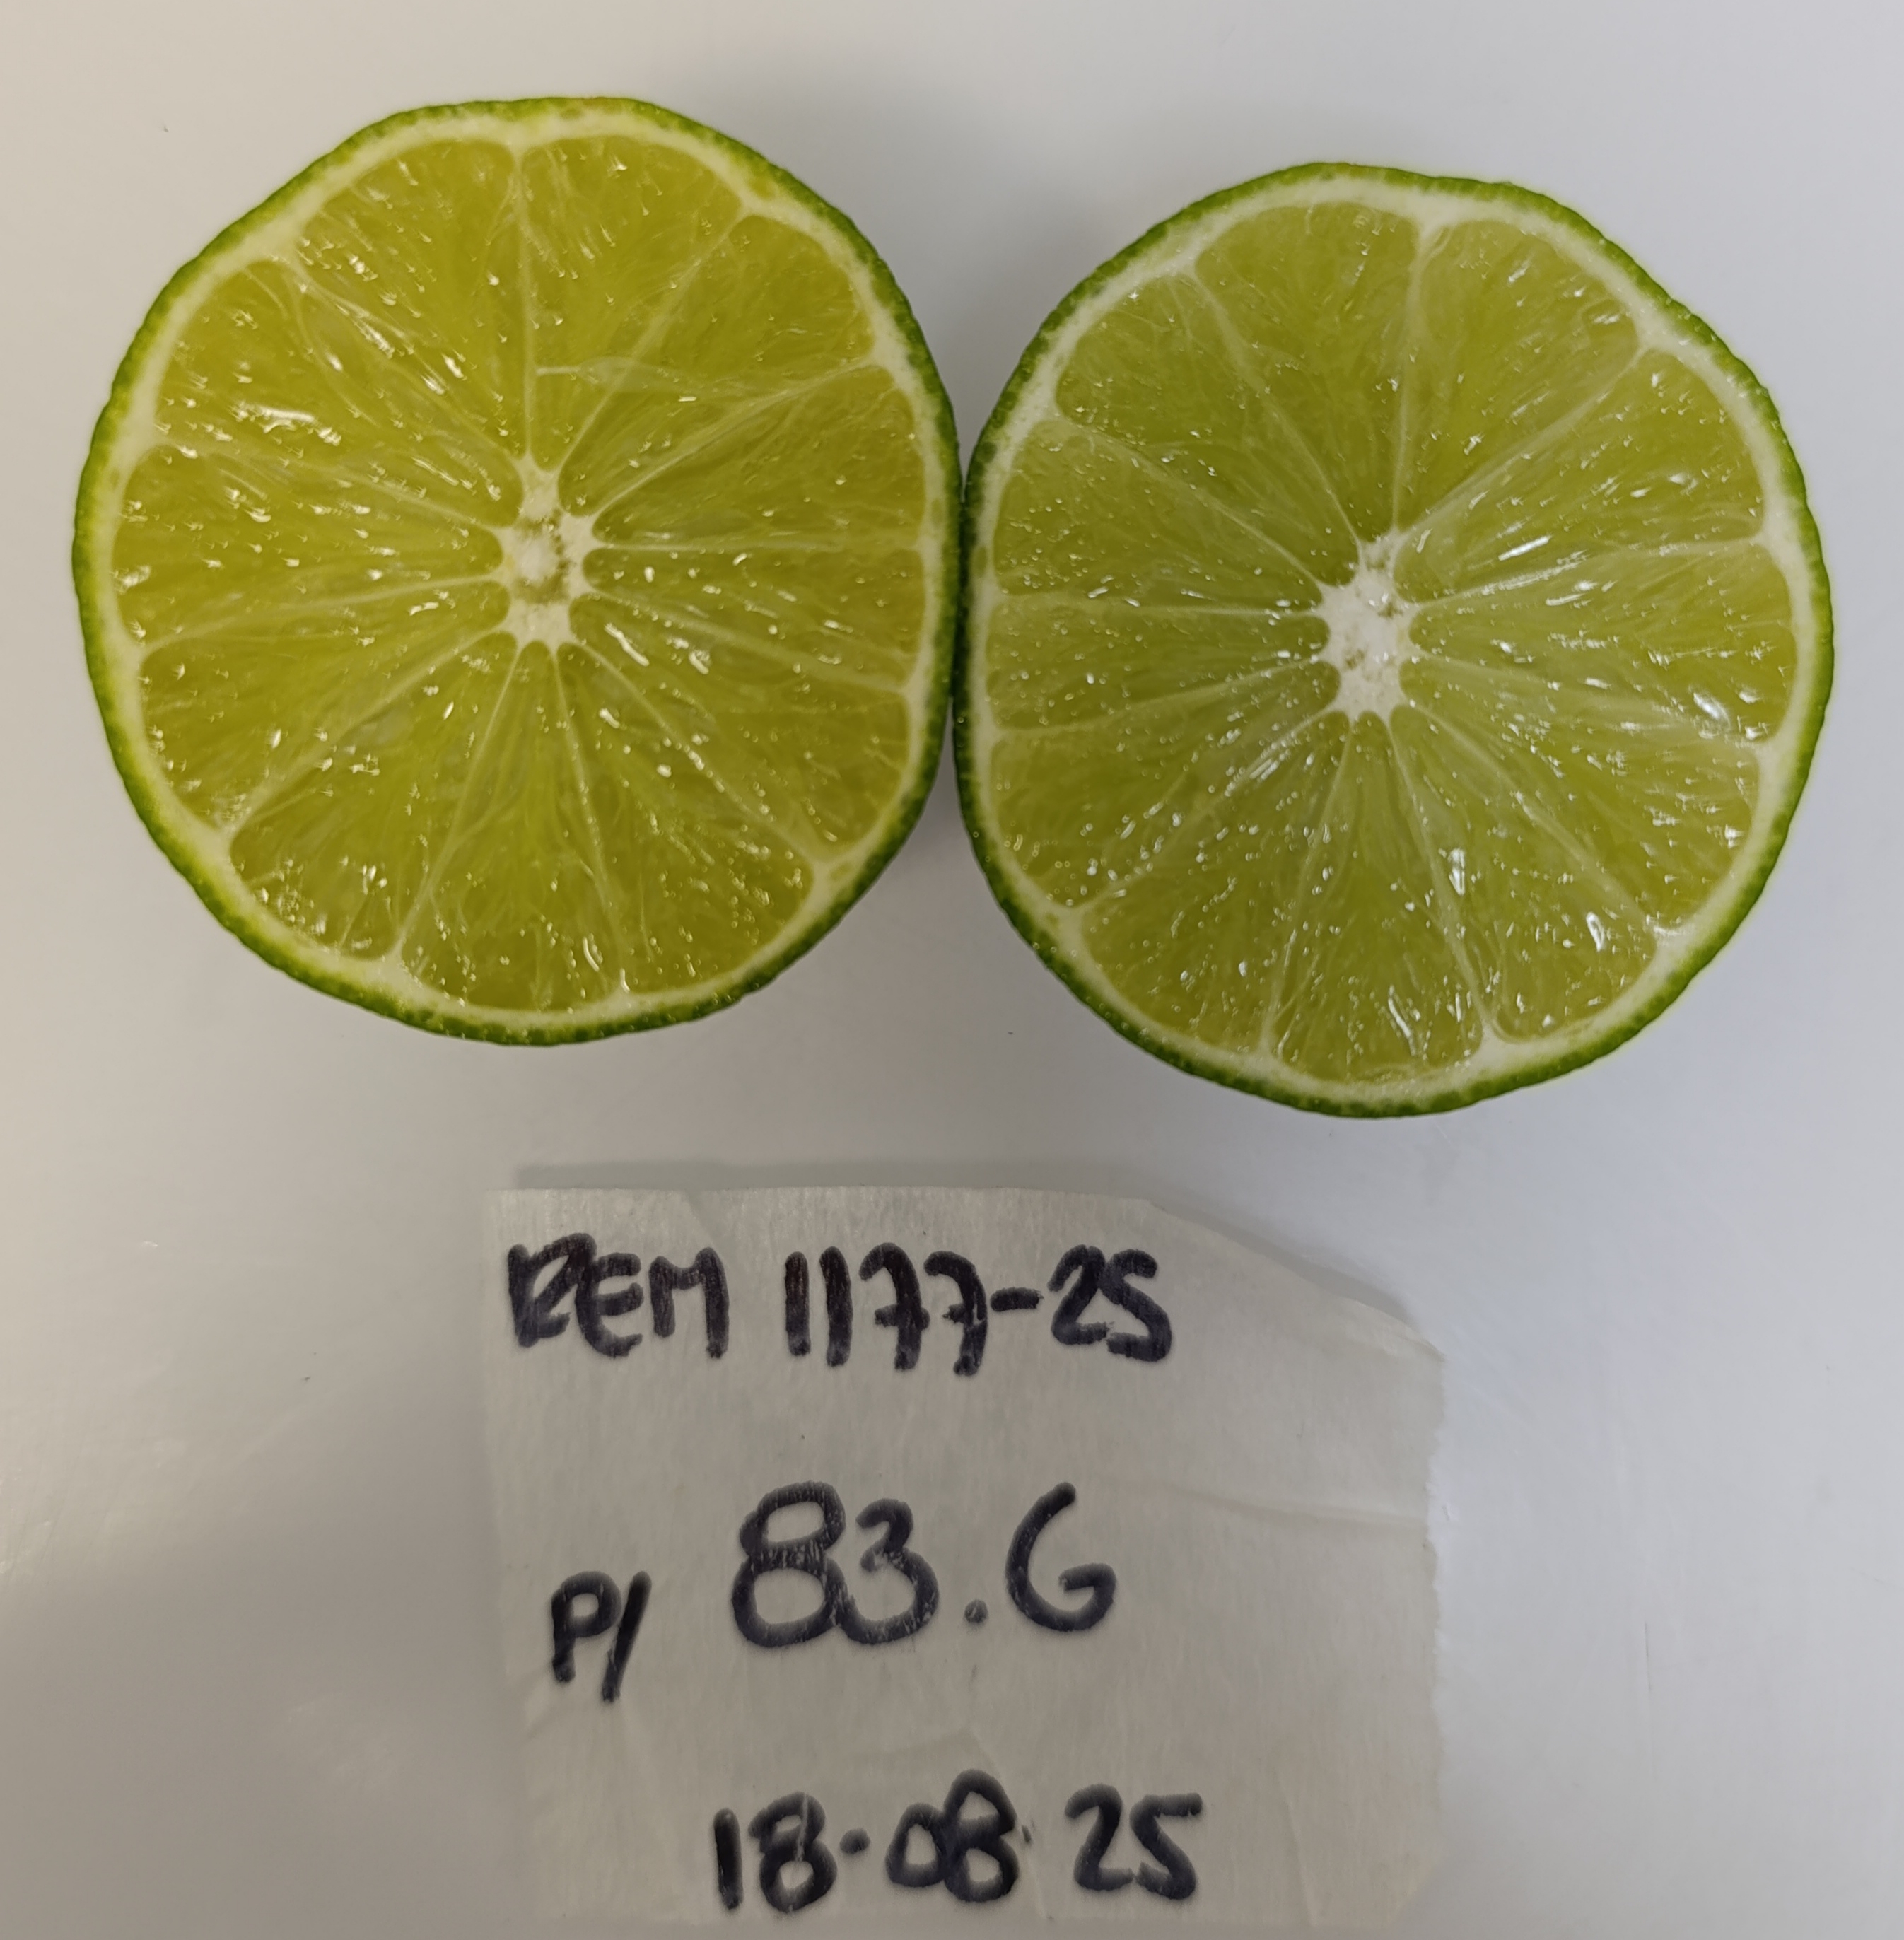 REM 1177-25
P/ 83.6
18-08-25